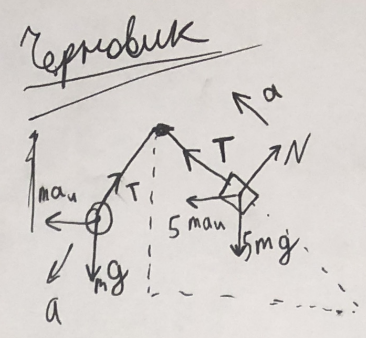 Черновик
a
T
N
T
ma_u
5ma_u
5mg
mg
a